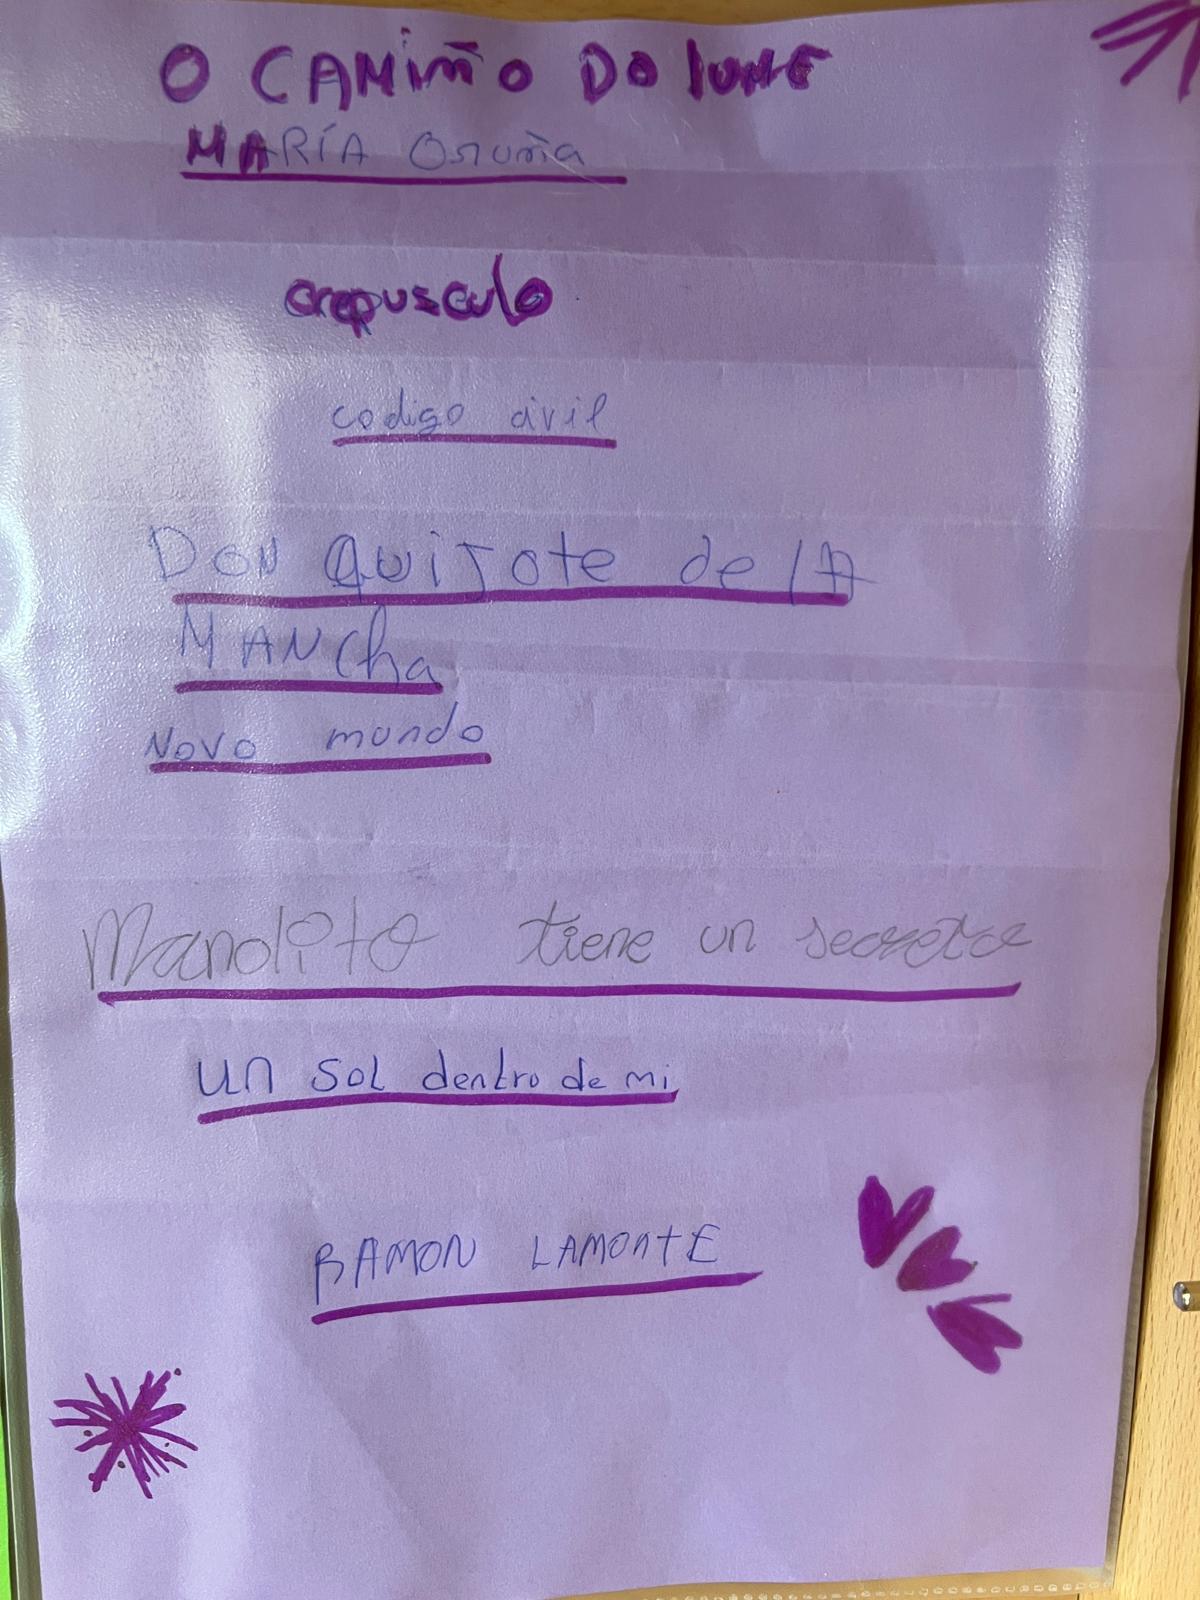 O CAMIÑO DO lUME
MARÍA Oruña
crepusculo
codigo civil
DON QUIJote de lA
MANCha
Novo mundo
Manolito tiene un secreto
un Sol dentro de mi
RAMON LAMOntE